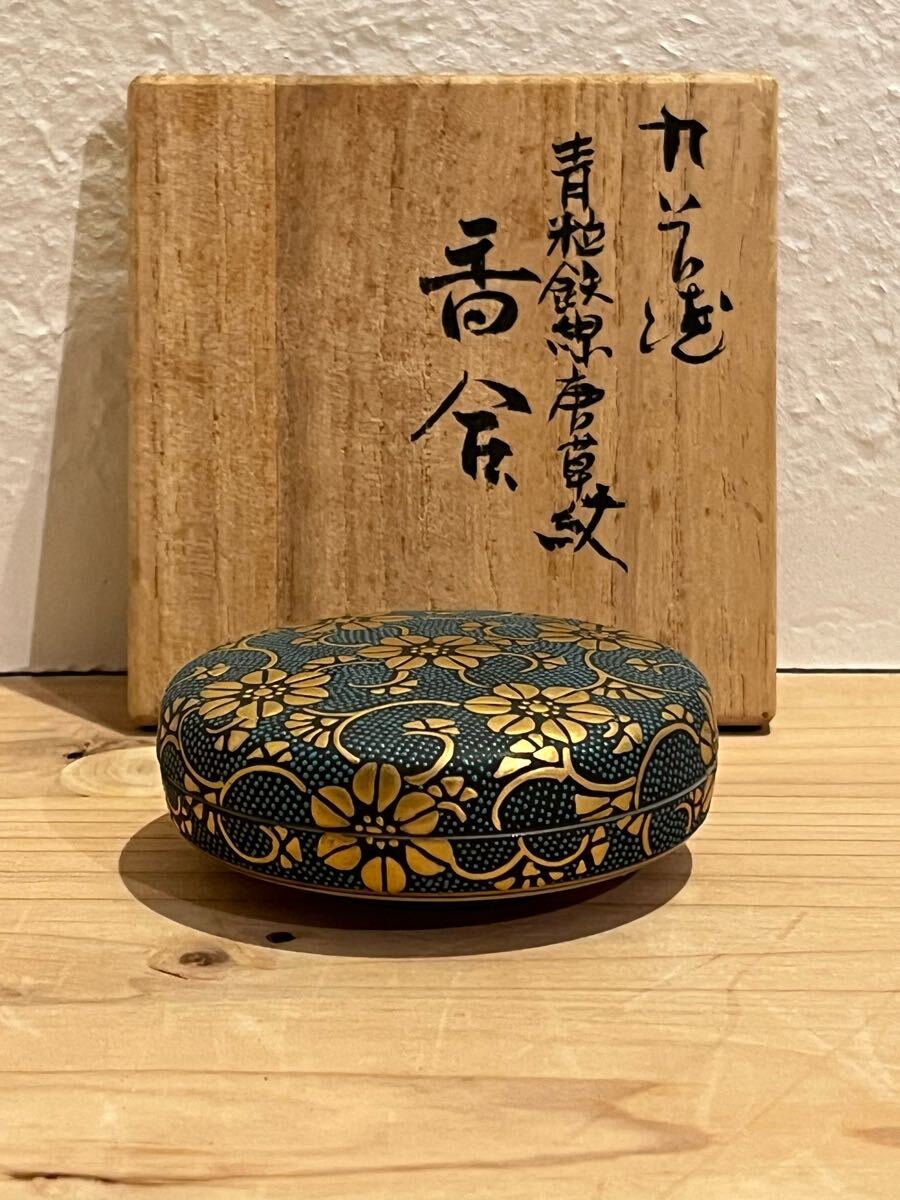 九谷焼
青粒鉄線唐草紋
香合